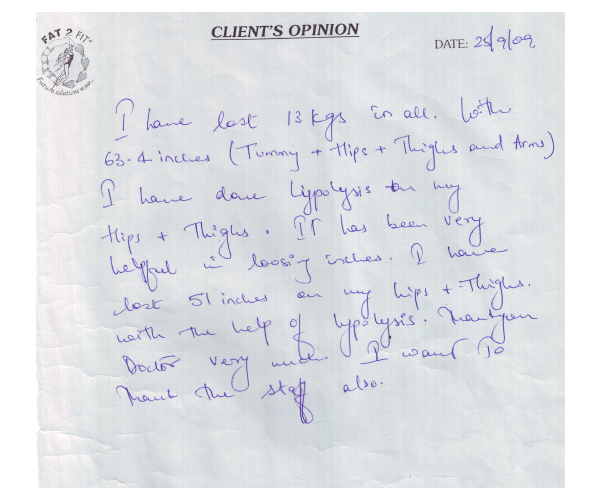 FAT 2 FIT
CLIENT'S OPINION
DATE: 25/9/09
I have lost 13 kgs in all. With
63.4 inches (Tummy + Hips + Thighs and Arms)
I have done Lypolysis on my
Hips + Thighs. It has been very
helpful in loosing inches. I have
lost 51 inches on my hips + Thighs.
with the help of lypolysis. Thankyou
Doctor very much I want To
Thank the staff also.